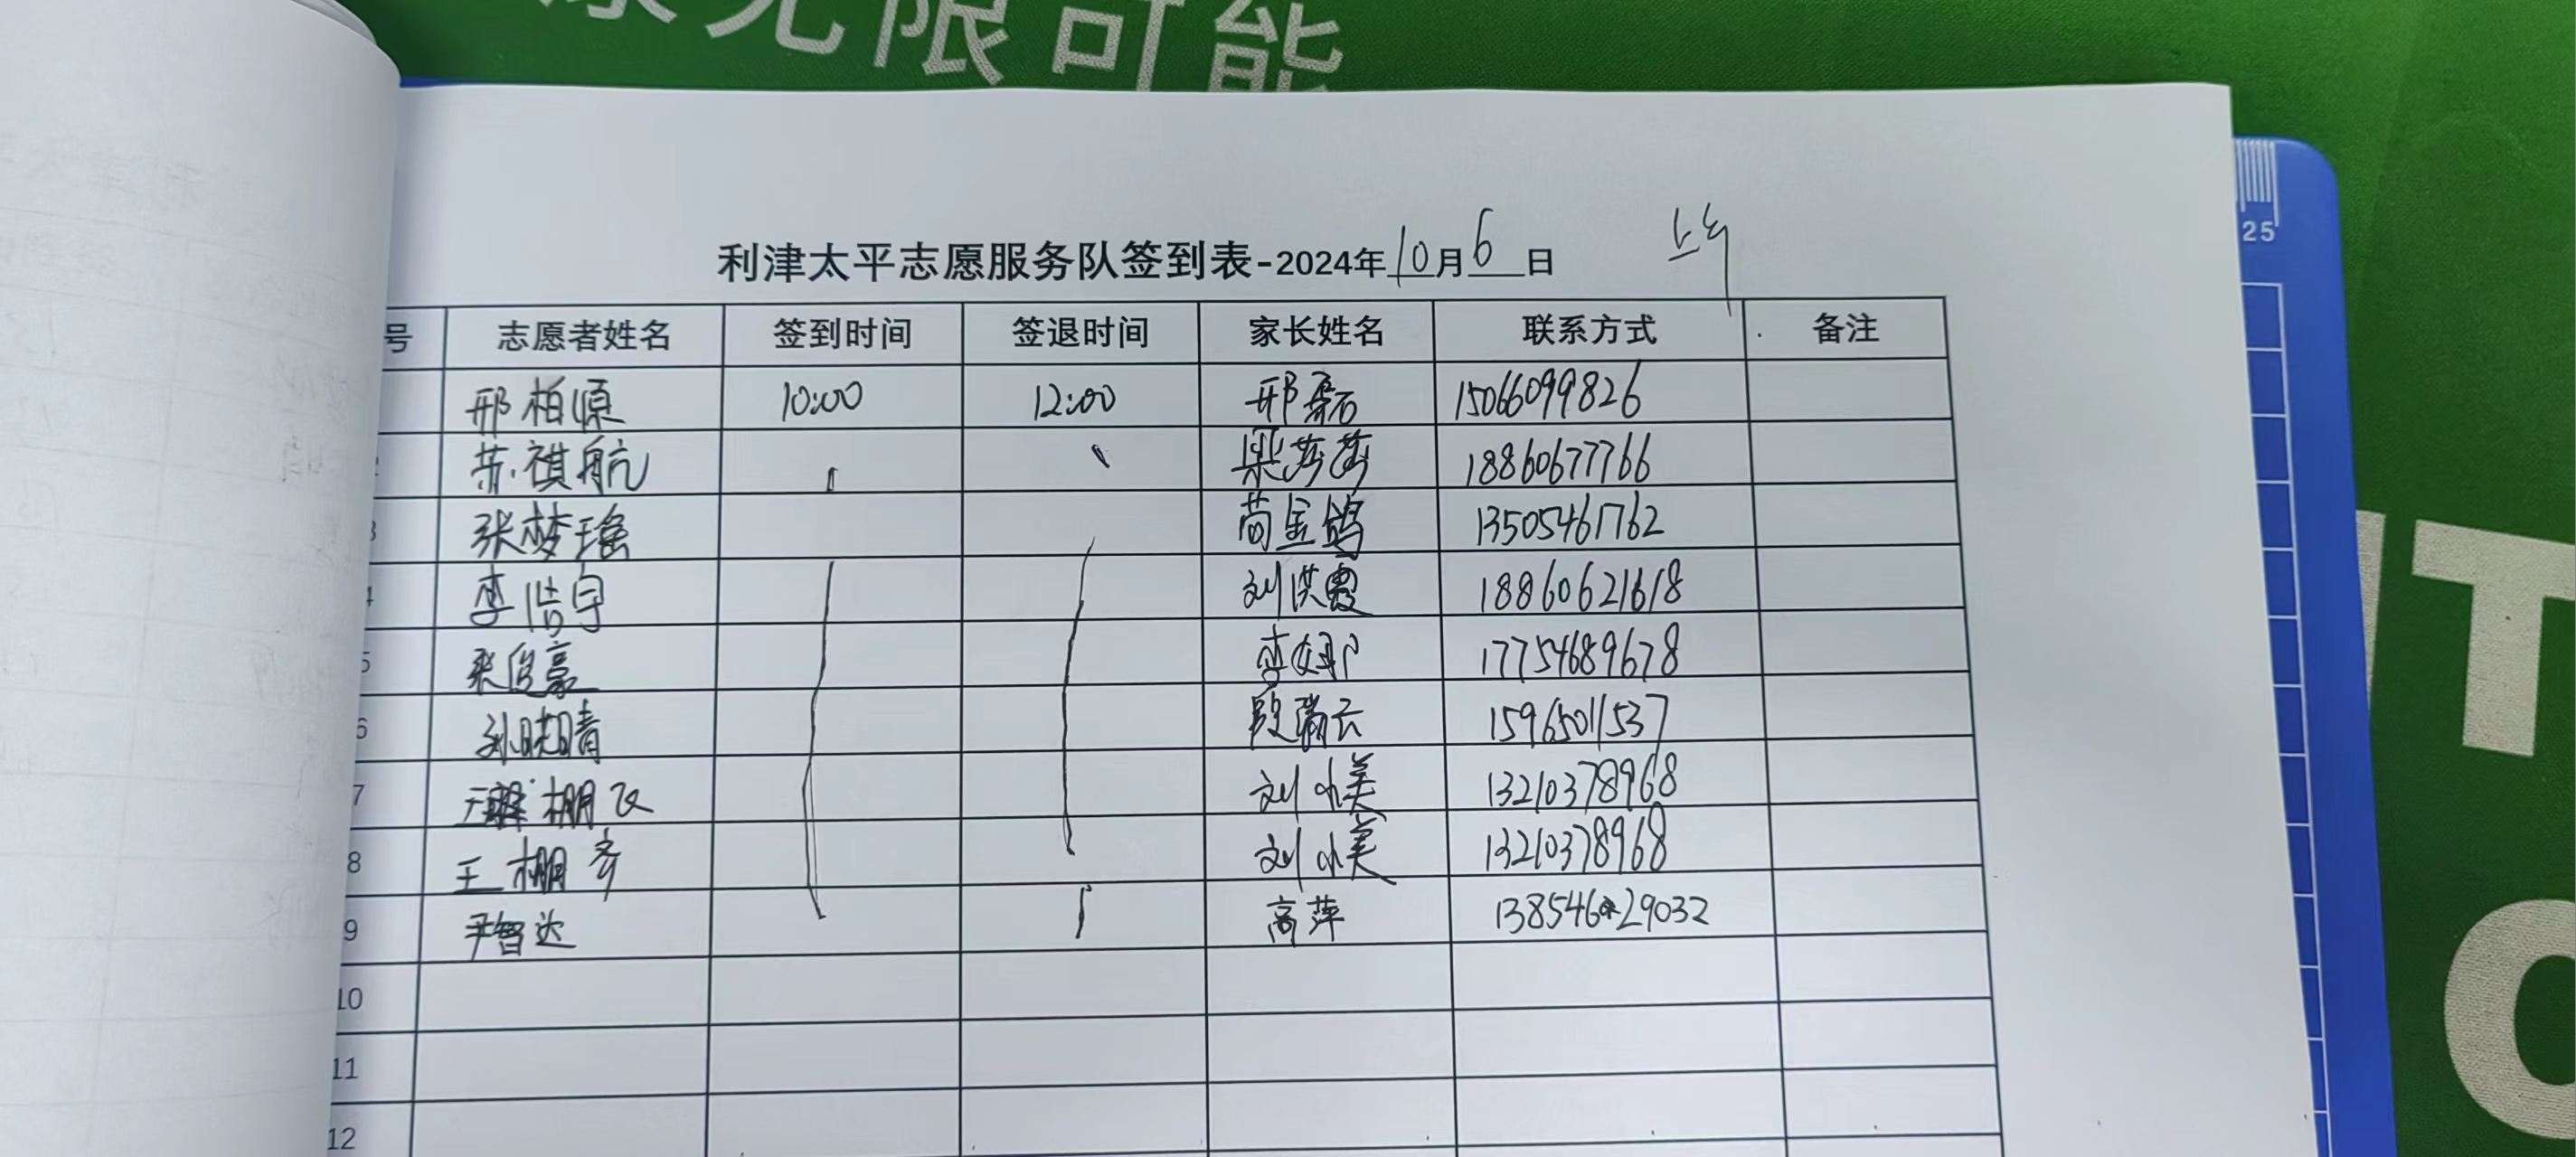 无限可能
25
利津太平志愿服务队签到表-2024年10月6日 上午
号 志愿者姓名 签到时间 签退时间 家长姓名 联系方式 备注
邢柏源 10:00 12:00 邢磊 15066099826
苏祺航 梁莎莎 18860677766
3 张梦瑶 苘金鸽 13505461762
4 李浩宇 刘洪霞 18860621618
5 张俊豪 李娜 17754689678
6 孙晴 段瑞云 15965011537
7 王棚飞 刘小美 13210378968
8 王棚齐 刘小美 13210378968
9 尹智达 高萍 13854629032
10
11
12